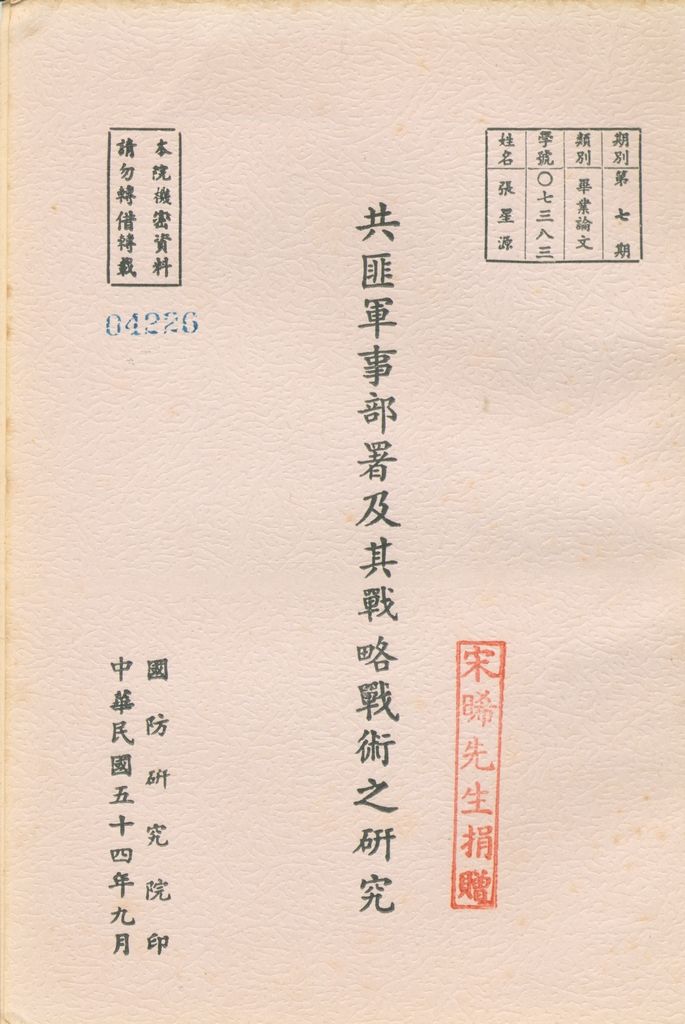 期別 第七期
類別 畢業論文
學號 〇七三八三
姓名 張星源
共匪軍事部署及其戰略戰術之研究
宋晞先生捐贈
本院機密資料
請勿轉借轉載
04226
國防研究院印
中華民國五十四年九月